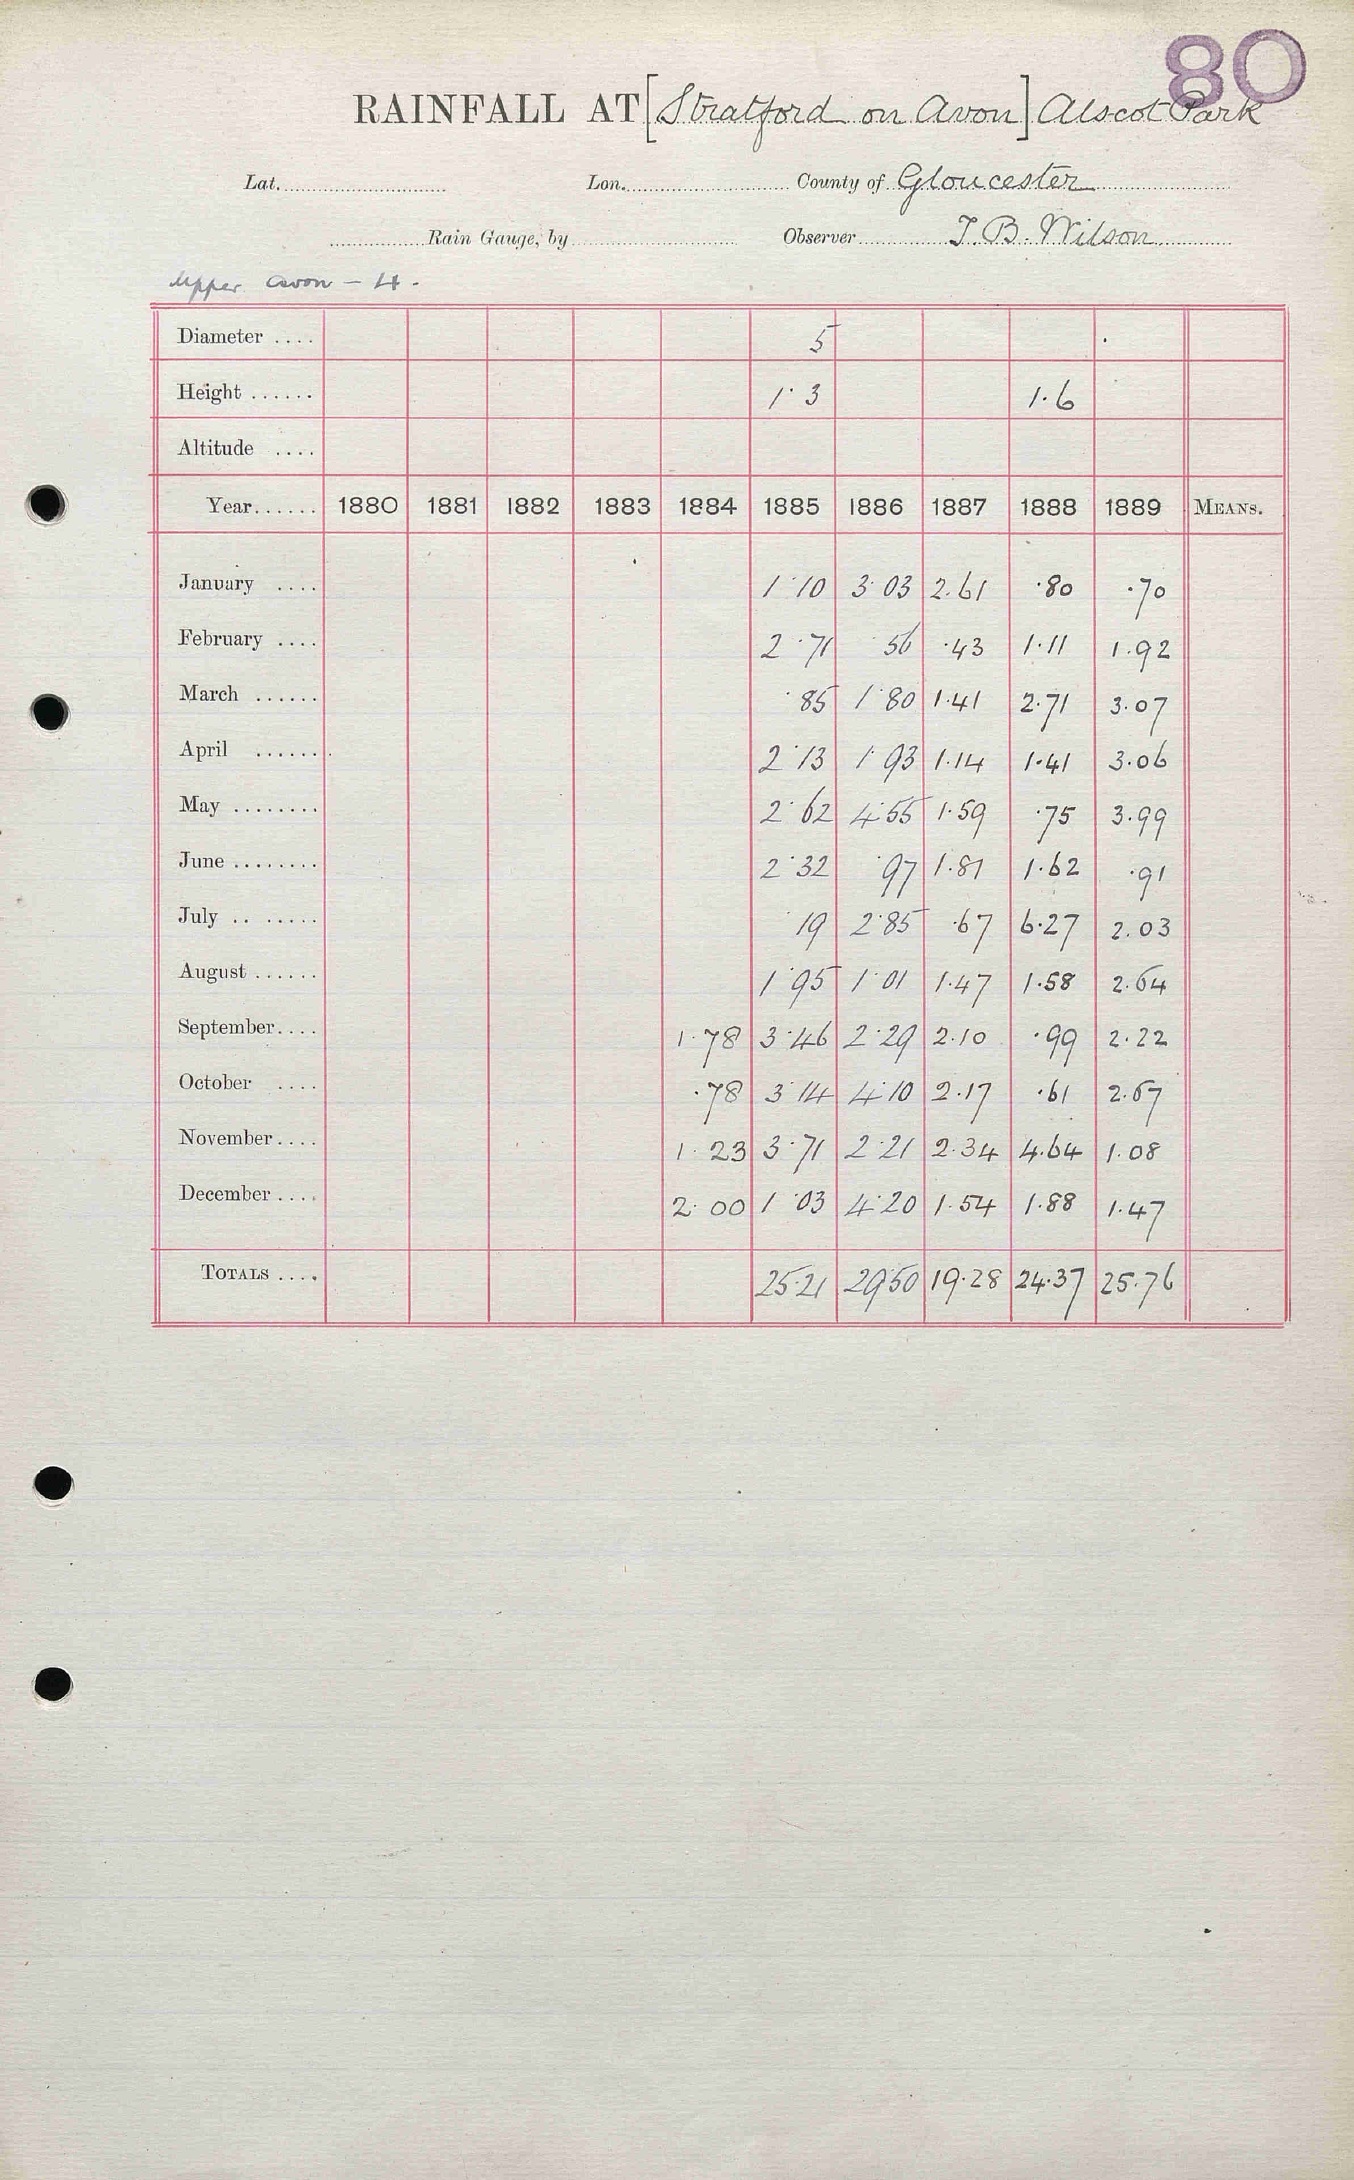 80
RAINFALL AT [Stratford on Avon] Alscot Park
Lat. Lon. County of Gloucester
Rain Gauge, by Observer T. B. Wilson
Upper Avon - 4.
Diameter .... 5
Height ...... 1·3 1·6
Altitude ....
Year...... 1880 1881 1882 1883 1884 1885 1886 1887 1888 1889 MEANS.
January .... 1·10 3·03 2.61 ·80 ·70
February .... 2·71 ·56 ·43 1·11 1·92
March ...... ·85 1·80 1·41 2·71 3·07
April ....... 2·13 1·93 1·14 1·41 3·06
May ........ 2·62 4·55 1·59 ·75 3·99
June ........ 2·32 ·97 1·81 1·62 ·91
July .. ...... ·19 2·85 ·67 6·27 2.03
August ...... 1·95 1·01 1·47 1·58 2·64
September.... 1·78 3·46 2·29 2.10 ·99 2·22
October .... ·78 3·14 4·10 2·17 ·61 2·67
November.... 1·23 3·71 2·21 2·34 4·64 1·08
December .... 2·00 1·03 4·20 1·54 1·88 1·47
TOTALS .... 25·21 29·50 19·28 24·37 25·76